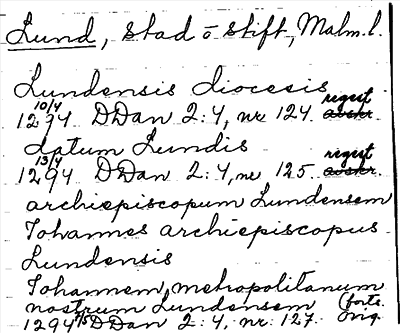 Lund, stad o stift, Malm. l.
Lundensis diocesis
10/4 regest
1294 DDan 2:4, nr 124. avskr.
datum Lundis
13/4 regest
1294 DDan 2:4, nr 125. avskr.
archiepiscopum Lundensem
Johannes archiepiscopus
Lundensis
Johannem, metropolitanum
nostrum Lundensem (forts.
1294 15/4 DDan 2:4, nr. 127. orig.